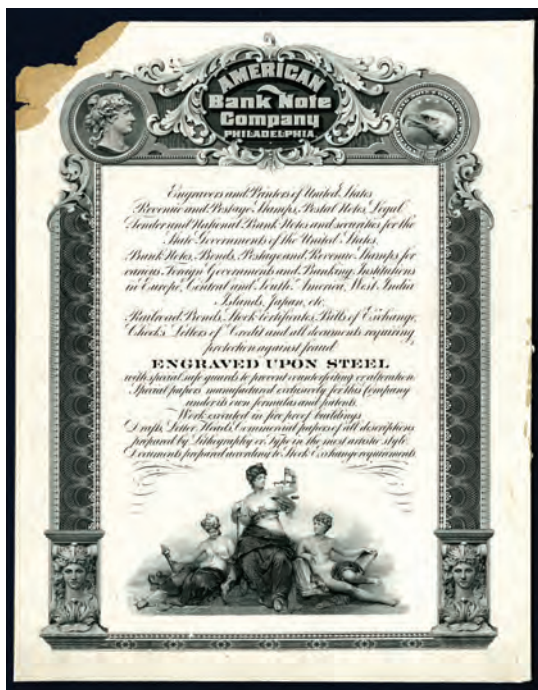 AMERICAN
Bank Note
Company
PHILADELPHIA
Engravers and Printers of United States
Revenue and Postage Stamps, Postal Notes, Legal
Tender and National Bank Notes and securities for the
State Governments of the United States,
Bank Notes, Bonds, Postage and Revenue Stamps for
various Foreign Governments and Banking Institutions
in Europe, Central and South America, West India
Islands, Japan, etc.
Railroad Bonds, Stock Certificates, Bills of Exchange,
Checks, Letters of Credit and all documents requiring
protection against fraud
ENGRAVED UPON STEEL
with special safe guards to prevent counterfeiting or alteration
Special papers manufactured exclusively for this Company
under its own formulas and patents.
Work executed in fire proof buildings
Drafts, Letter Heads, Commercial papers of all descriptions
prepared by Lithography or type in the most artistic style.
Documents prepared according to Stock Exchange requirements.